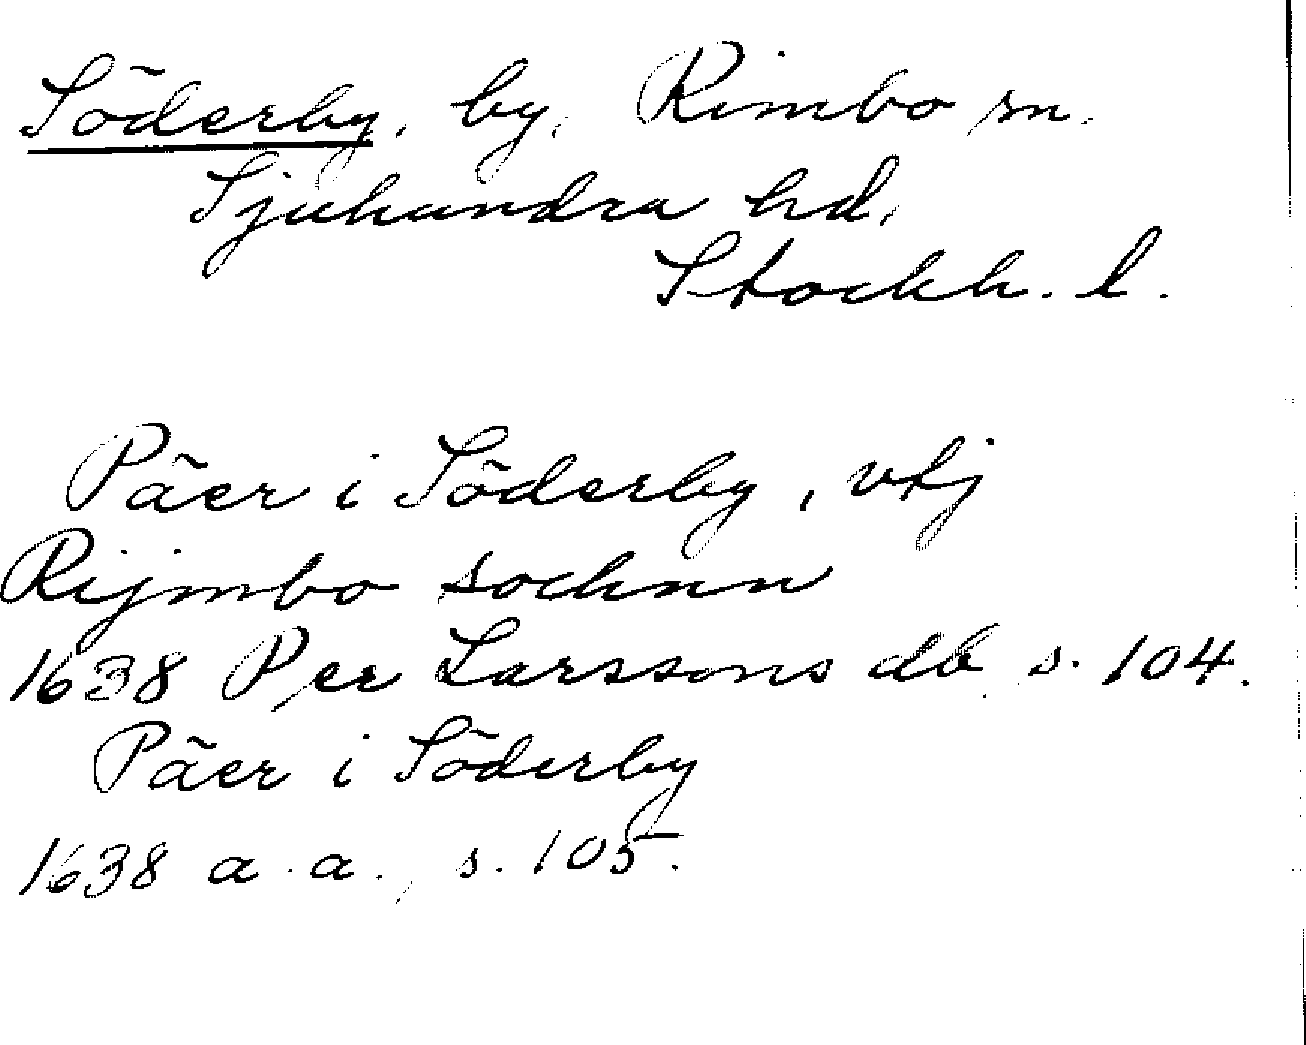 Söderby, by, Rimbo sn.
Sjuhundra hd,
Stockh. l.
Päer i Söderby, vtj
Rijmbo sochnn
1638 Per Larssons db s. 104.
Päer i Söderby
1638 a. a., s. 105.